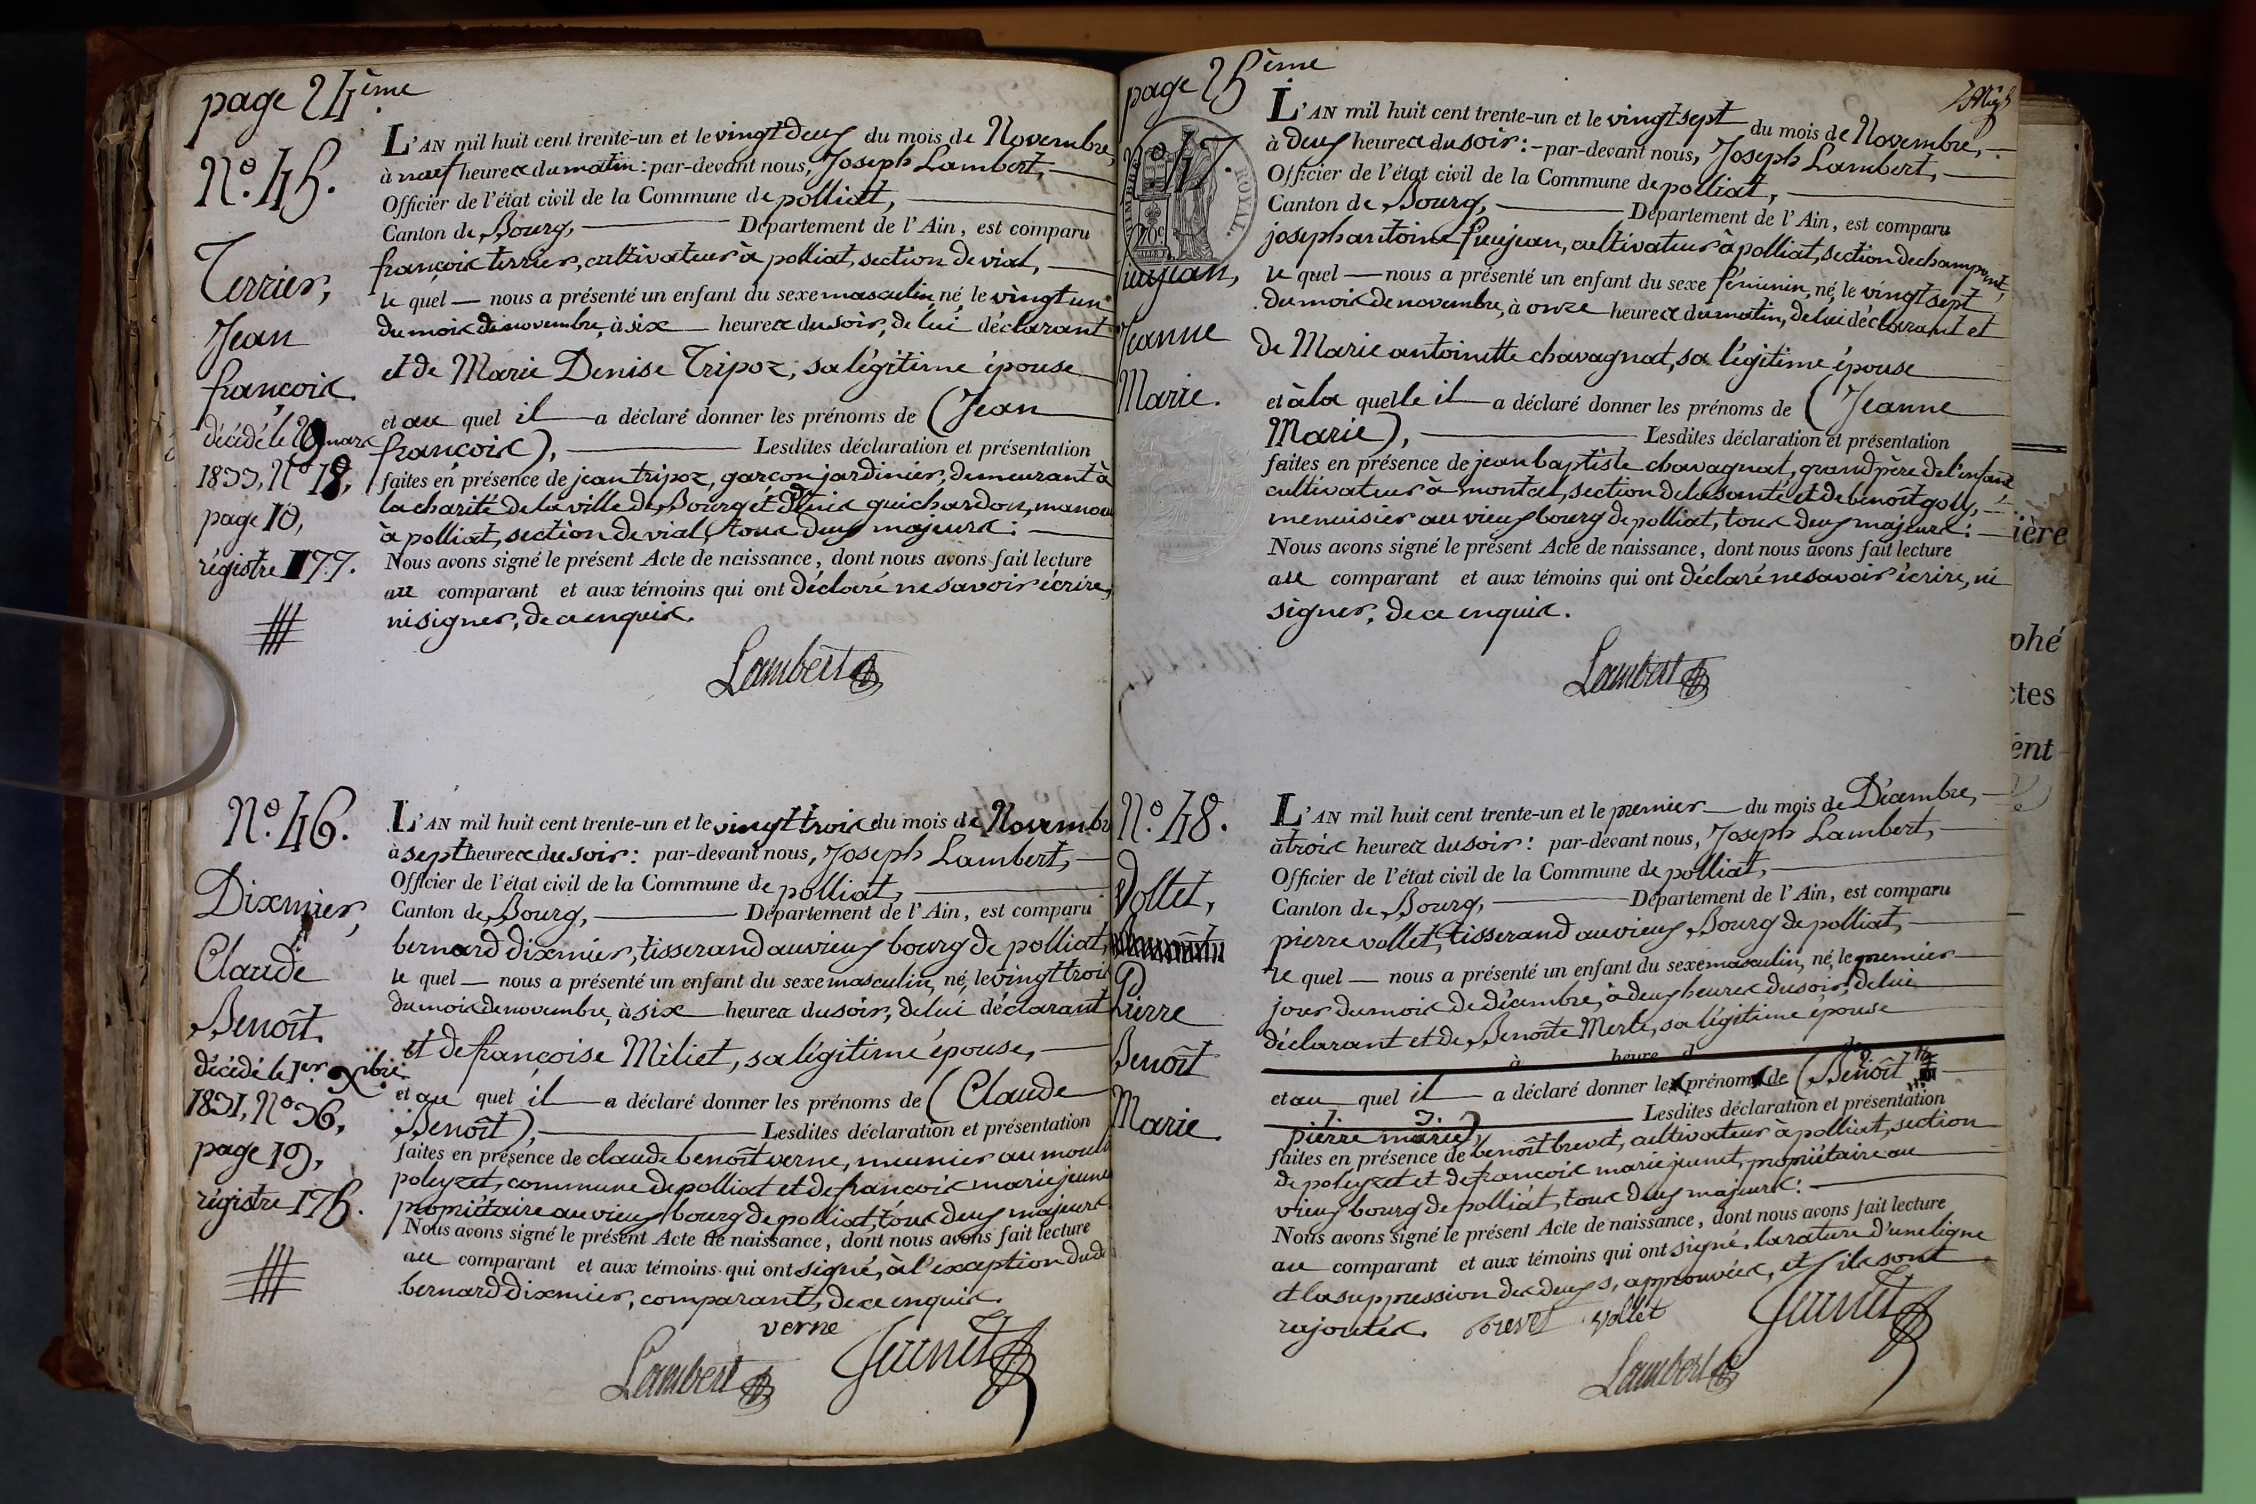 page 24ème
N.º 45.
Terrier,
Jean
françois.
décédé le 29 mars
1833, Nº 18,
page 10,
régistre 177.
L'AN mil huit cent trente-un et le vingt deux du mois de Novembre,
à neuf heures du matin : par-devant nous, Joseph Lambert,
Officier de l'état civil de la Commune de polliat,
Canton de Bourg, Département de l'Ain, est comparu
françois terrier, cultivateur à polliat, section de vial,
le quel nous a présenté un enfant du sexe masculin, né, le vingt un
du mois de novembre, à six heures du soir, de lui déclarant
et de Marie Denise Tripoz, sa légitime épouse
et au quel il a déclaré donner les prénoms de (Jean
françois), Lesdites déclaration et présentation
faites en présence de jean tripoz, garçon jardinier, demeurant à
la charité de la ville de Bourg et denis guichardon, manou
à polliat, section de vial, tous deux majeurs :
Nous avons signé le présent Acte de naissance, dont nous avons fait lecture
au comparant et aux témoins qui ont déclaré ne savoir écrire,
ni signer, de ce enquis.
Lambert
N.º 46.
Dixmier,
Claude
Benoît.
décédé le 1er xbre
1831, Nº 36,
page 19,
régistre 175.
L'AN mil huit cent trente-un et le vingt trois du mois de Novembre
à sept heures du soir : par-devant nous, Joseph Lambert,
Officier de l'état civil de la Commune de polliat,
Canton de Bourg, Département de l'Ain, est comparu
bernard dixmier, tisserand au vieux bourg de polliat,
le quel nous a présenté un enfant du sexe masculin, né, le vingt trois
du mois de novembre, à six heures du soir, de lui déclarant
et de françoise Méliet, sa légitime épouse,
et au quel il a déclaré donner les prénoms de (Claude
Benoît), Lesdites déclaration et présentation
faites en présence de claude benoît verne, meunier au mouli
poleyzet, commune de polliat et de françois marie jeune
propriétaire au vieux bourg de polliat, tous deux majeurs.
Nous avons signé le présent Acte de naissance, dont nous avons fait lecture
au comparant et aux témoins qui ont signé, à l'exception dudi
bernard dixmier, comparant, de ce enquis.
verne
Lambert Jeunet
page 25ème
Nº 47.
ROYAL.
feujean,
Jeanne
Marie.
L'AN mil huit cent trente-un et le vingt sept du mois de Novembre,
à deux heures du soir : par-devant nous, Joseph Lambert,
Officier de l'état civil de la Commune de polliat,
Canton de Bourg, Département de l'Ain, est comparu
joseph antoine feujean, cultivateur à polliat, section de champint,
le quel nous a présenté un enfant du sexe féminin, né, le vingt sept
du mois de novembre, à onze heures du matin, de lui déclarant et
de Marie antoinette chavagnat, sa légitime épouse
et à la quelle il a déclaré donner les prénoms de (Jeanne
Marie), Lesdites déclaration et présentation
faites en présence de jean baptiste chavagnat, grand père de l'enfant
cultivateur à montcet, section de la santé et de benoît goly,
menuisier au vieux bourg de polliat, tous deux majeurs :
Nous avons signé le présent Acte de naissance, dont nous avons fait lecture
au comparant et aux témoins qui ont déclaré ne savoir écrire, ni
signer, de ce enquis.
Lambert
N.º 48.
Vollet,
Pierre
Benoît
Marie.
L'AN mil huit cent trente-un et le premier du mois de Décembre,
à trois heures du soir : par-devant nous, Joseph Lambert,
Officier de l'état civil de la Commune de polliat,
Canton de Bourg, Département de l'Ain, est comparu
pierre vollet, tisserand au vieux Bourg de polliat,
le quel nous a présenté un enfant du sexe masculin, né, le premier
jour du mois de décembre, à deux heures du soir, de lui
déclarant et de Benoîte Merle, sa légitime épouse
à heure d
et au quel il a déclaré donner les prénoms de (Benoît
pierre marie), Lesdites déclaration et présentation
faites en présence de benoît brevet, cultivateur à polliat, section
de poleyzet et de françois marie jeunet, propriétaire au
vieux bourg de polliat, tous deux majeurs :
Nous avons signé le présent Acte de naissance, dont nous avons fait lecture
au comparant et aux témoins qui ont signé, la rature d'une ligne
et la suppression des deux s, approuvées, et ils sont
rajoutés. brevet vollet Jeunet
Lambert
ière
phé
ctes
ent